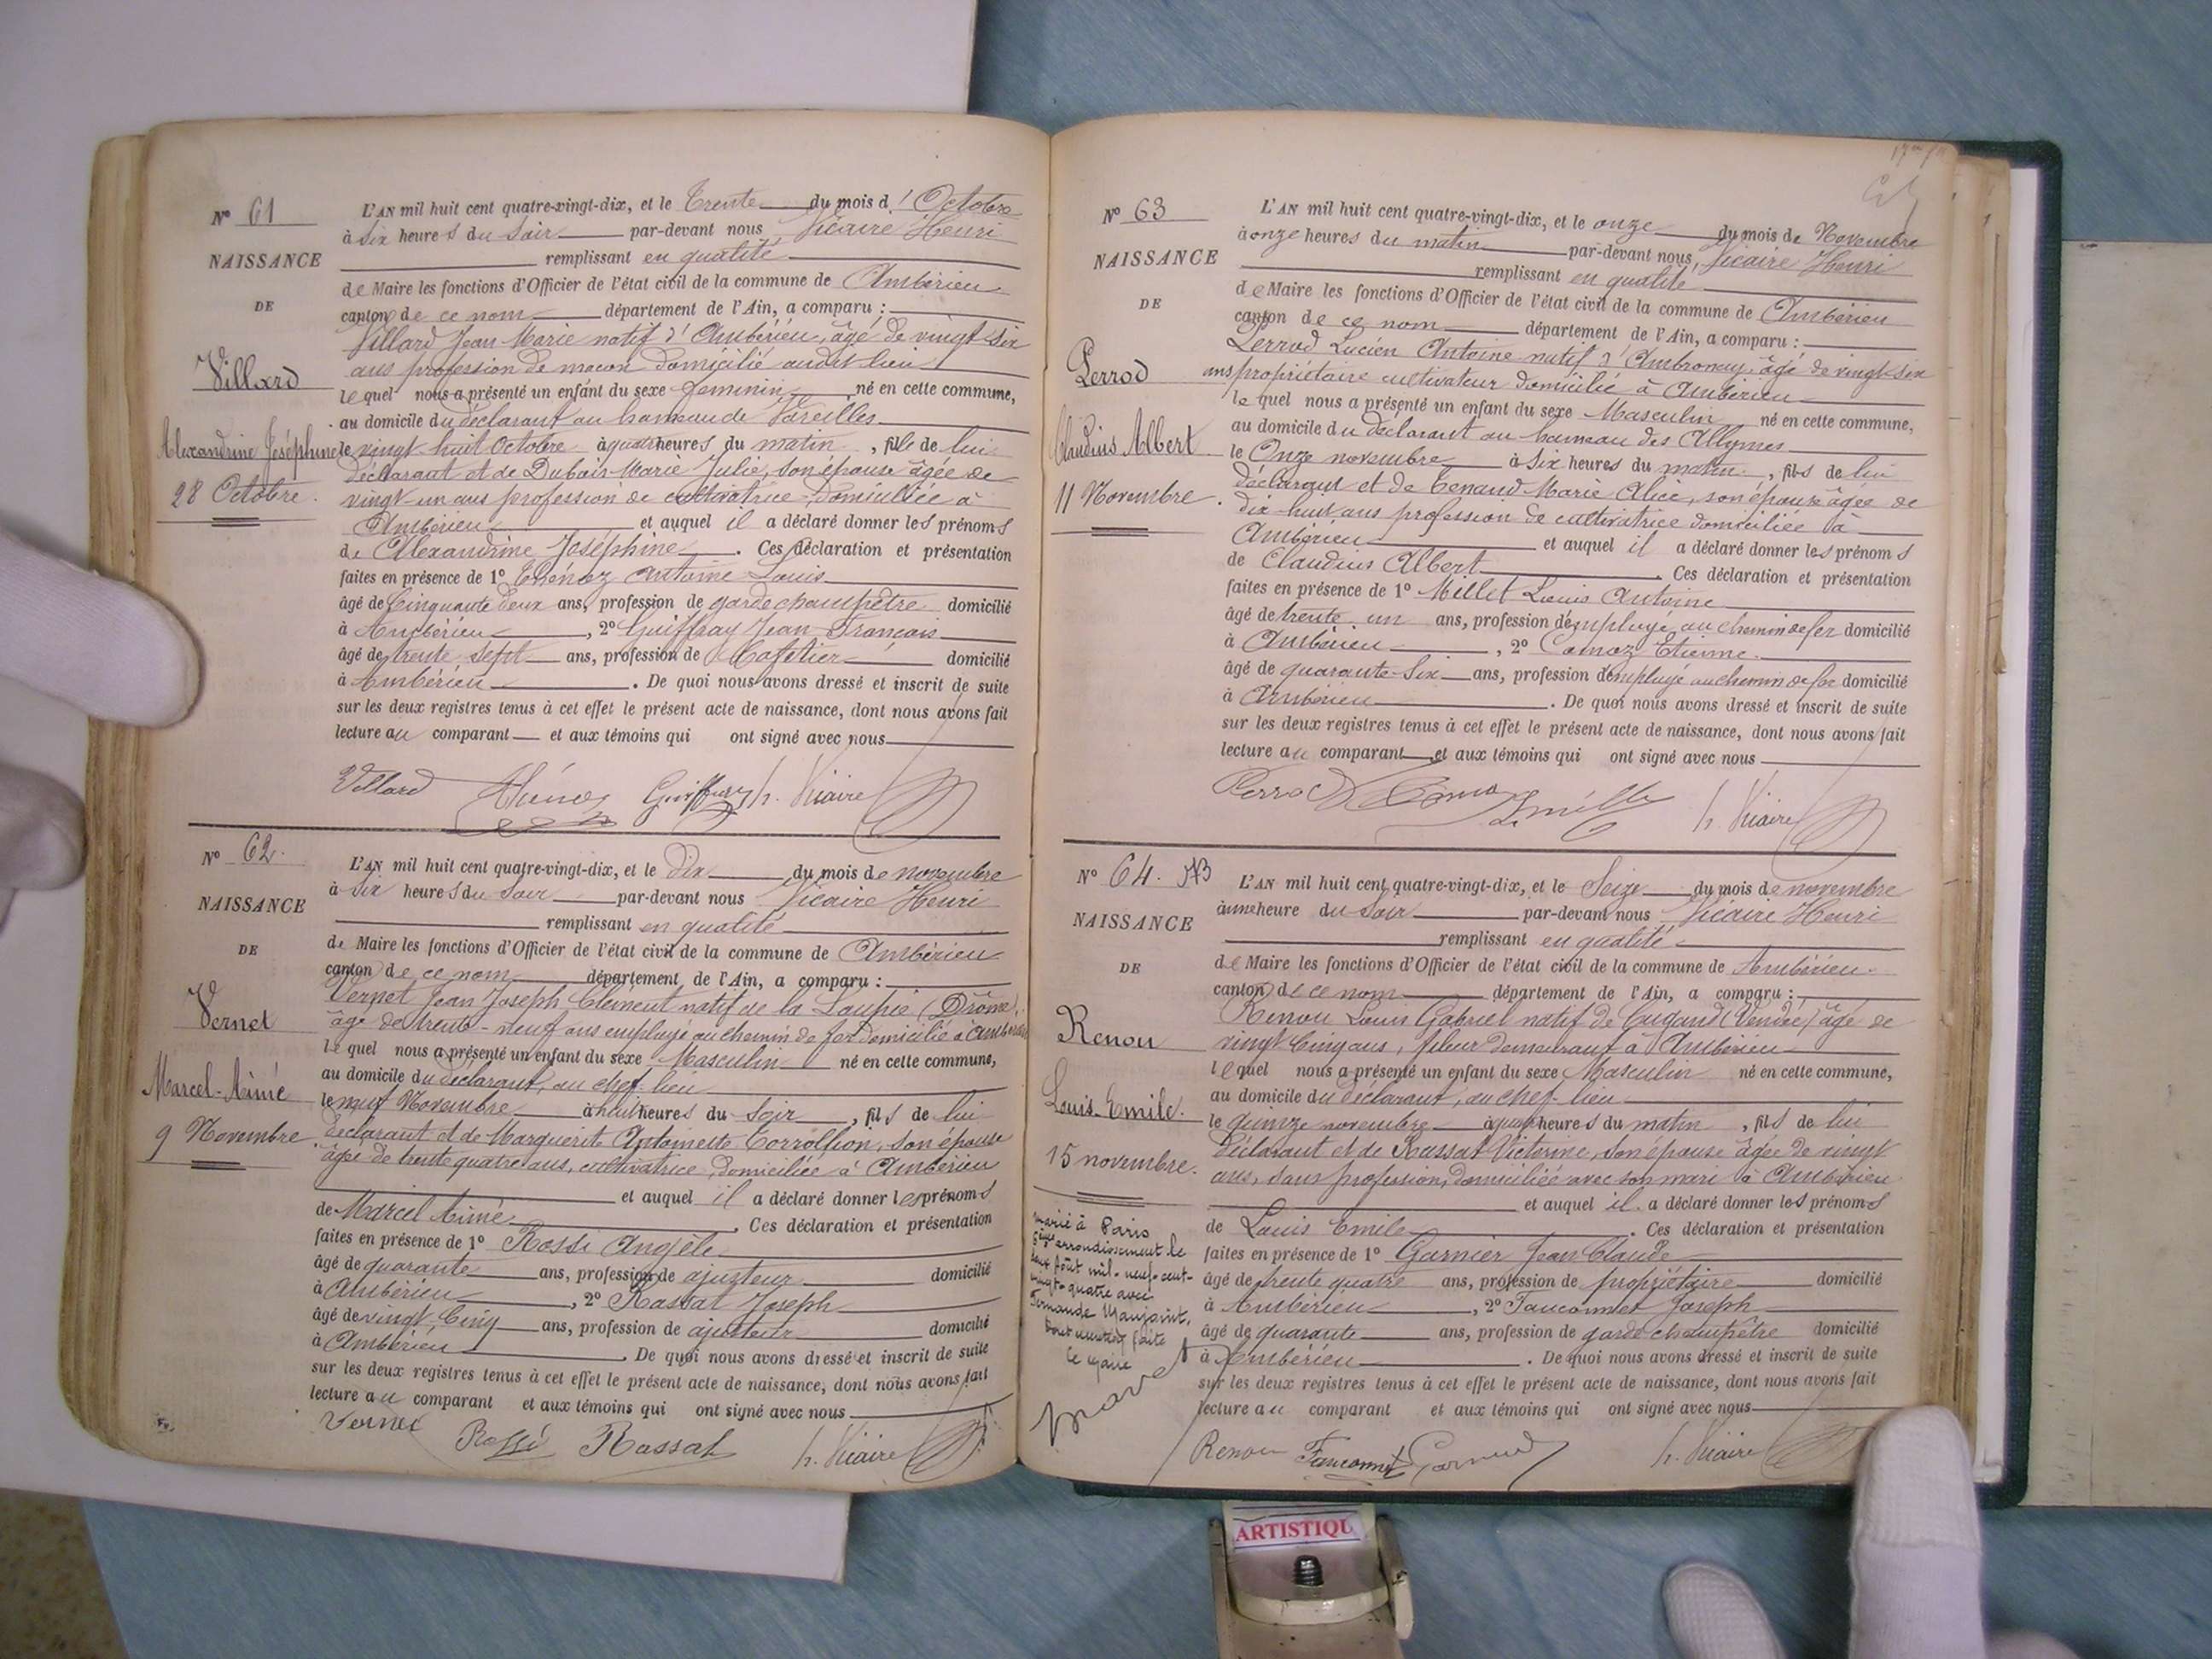 N° 61
NAISSANCE
DE
Villard
Alexandrine Joséphine
28 Octobre.
L'AN mil huit cent quatre-vingt-dix, et le Trente du mois d'Octobre
à Six heures du Soir par-devant nous Vicaire Henri
remplissant en qualité
de Maire les fonctions d'Officier de l'état civil de la commune de Ambérieu
canton de ce nom département de l'Ain, a comparu :
Villard Jean Marie natif d'Ambérieu, âgé de vingt-six
ans profession de maçon domicilié audit lieu
lequel nous a présenté un enfant du sexe féminin né en cette commune,
au domicile du déclarant au hameau de Vareilles
le vingt huit Octobre à quatre heures du matin, fille de lui
déclarant et de Dubois Marie Julie, son épouse âgée de
vingt un ans profession de cultivatrice domiciliée à
Ambérieu et auquel il a déclaré donner les prénoms
de Alexandrine Joséphine. Ces déclaration et présentation
faites en présence de 1° Thénoz Antoine Louis
âgé de Cinquante deux ans, profession de garde champêtre domicilié
à Ambérieu, 2° Guiffray Jean François
âgé de trente sept ans, profession de Cafetier domicilié
à Ambérieu. De quoi nous avons dressé et inscrit de suite
sur les deux registres tenus à cet effet le présent acte de naissance, dont nous avons fait
lecture au comparant et aux témoins qui ont signé avec nous
Villard Thénoz Guiffray h. Vicaire
N° 62.
NAISSANCE
DE
Vernet
Marcel-Aimé
9 Novembre
L'AN mil huit cent quatre-vingt-dix, et le Dix du mois de novembre
à Six heures du Soir par-devant nous Vicaire Henri
remplissant en qualité
de Maire les fonctions d'Officier de l'état civil de la commune de Ambérieu
canton de ce nom département de l'Ain, a comparu :
Vernet Jean Joseph Clément natif de la Laupie (Drôme)
âgé de trente-neuf ans employé au chemin de fer domicilié à Ambérieu
lequel nous a présenté un enfant du sexe Masculin né en cette commune,
au domicile du déclarant, au chef-lieu
le neuf Novembre à huit heures du Soir, fils de lui
déclarant et de Marguerite Antoinette Corrollion, son épouse
âgée de trente quatre ans, cultivatrice, domiciliée à Ambérieu
et auquel il a déclaré donner les prénoms
de Marcel Aimé. Ces déclaration et présentation
faites en présence de 1° Rossi Angèle
âgé de quarante ans, profession de ajusteur domicilié
à Ambérieu, 2° Rassat Joseph
âgé de vingt Cinq ans, profession de ajusteur domicilié
à Ambérieu. De quoi nous avons dressé et inscrit de suite
sur les deux registres tenus à cet effet le présent acte de naissance, dont nous avons fait
lecture au comparant et aux témoins qui ont signé avec nous
Vernet Rossi Rassat h. Vicaire
N° 63
NAISSANCE
DE
Perrod
Claudius Albert
11 Novembre.
L'AN mil huit cent quatre-vingt-dix, et le onze du mois de Novembre
à onze heures du matin par-devant nous, Vicaire Henri
remplissant en qualité
de Maire les fonctions d'Officier de l'état civil de la commune de Ambérieu
canton de ce nom département de l'Ain, a comparu :
Perrod Lucien Antoine natif d'Ambronay, âgé de vingt-six
ans propriétaire cultivateur domicilié à Ambérieu
lequel nous a présenté un enfant du sexe Masculin né en cette commune,
au domicile du déclarant au hameau des Allymes
le Onze novembre à Six heures du matin, fils de lui
déclarant et de Tenand Marie Alice, son épouse âgée de
dix-huit ans profession de cultivatrice domiciliée à
Ambérieu et auquel il a déclaré donner les prénoms
de Claudius Albert. Ces déclaration et présentation
faites en présence de 1° Millet Louis Antoine
âgé de trente un ans, profession d'employé au chemin de fer domicilié
à Ambérieu, 2° Cornoz Etienne
âgé de quarante-Six ans, profession d'employé au chemin de fer domicilié
à Ambérieu. De quoi nous avons dressé et inscrit de suite
sur les deux registres tenus à cet effet le présent acte de naissance, dont nous avons fait
lecture au comparant et aux témoins qui ont signé avec nous
Perrod h. Vicaire
N° 64.
NAISSANCE
DE
Renou
Louis-Emile.
15 novembre.
marié à Paris
arrondissement le
deux août mil-neuf-cent-
vingt-quatre avec
Le Maire
L'AN mil huit cent quatre-vingt-dix, et le Seize du mois de novembre
à une heure du Soir par-devant nous Vicaire Henri
remplissant en qualité
de Maire les fonctions d'Officier de l'état civil de la commune de Ambérieu
canton de ce nom département de l'Ain, a comparu :
Renou Louis Gabriel natif de Cugand (Vendée) âgé de
vingt Cinq ans, fileur demeurant à Ambérieu
lequel nous a présenté un enfant du sexe Masculin né en cette commune,
au domicile du déclarant, au chef-lieu
le quinze novembre à quatre heures du matin, fils de lui
déclarant et de Rassat Victorine, son épouse âgée de vingt
ans, sans profession, domiciliée avec son mari à Ambérieu
et auquel il a déclaré donner les prénoms
de Louis Emile. Ces déclaration et présentation
faites en présence de 1° Garnier Jean Claude
âgé de trente quatre ans, profession de propriétaire domicilié
à Ambérieu, 2° Fauconnet Joseph
âgé de quarante ans, profession de garde champêtre domicilié
à Ambérieu. De quoi nous avons dressé et inscrit de suite
sur les deux registres tenus à cet effet le présent acte de naissance, dont nous avons fait
lecture au comparant et aux témoins qui ont signé avec nous
Renou Fauconnet Garnier h. Vicaire
ARTISTIQU